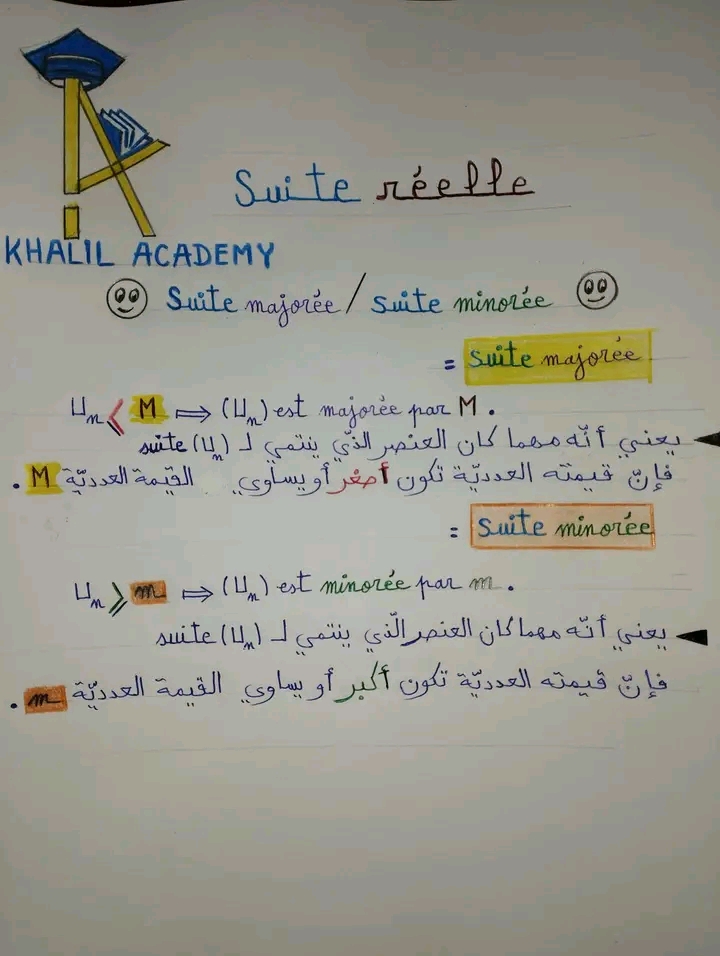 Suite réelle
KHALIL ACADEMY
Suite majorée / suite minorée
suite majorée =
Un ⩽ M ⟹ (Un) est majorée par M.
يعني أنّه مهما كان العنصر الذّي ينتمي لـ suite (Un)
فإنّ قيمته العدديّة تكون أصغر أو يساوي القيمة العدديّة M.
suite minorée :
Un ⩾ m ⟹ (Un) est minorée par m.
يعني أنّه مهما كان العنصر الّذي ينتمي لـ suite (Un)
فإنّ قيمته العدديّة تكون أكبر أو يساوي القيمة العدديّة m.